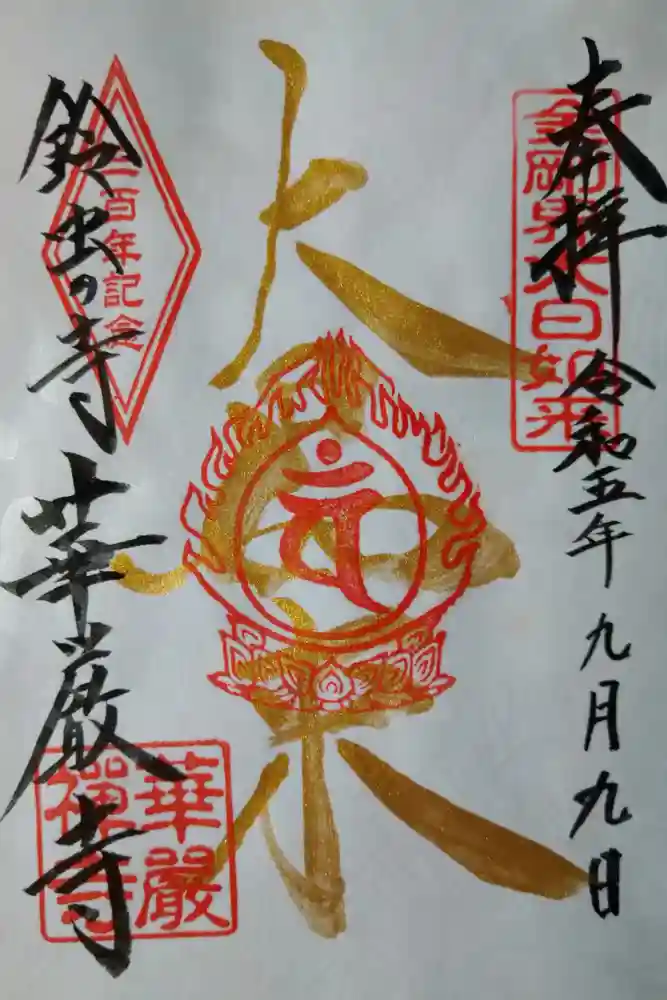 奉拝
令和五年九月九日
金剛界大日如来
大日如来
三百年記念
鈴虫の寺
華厳寺
華嚴
禪寺